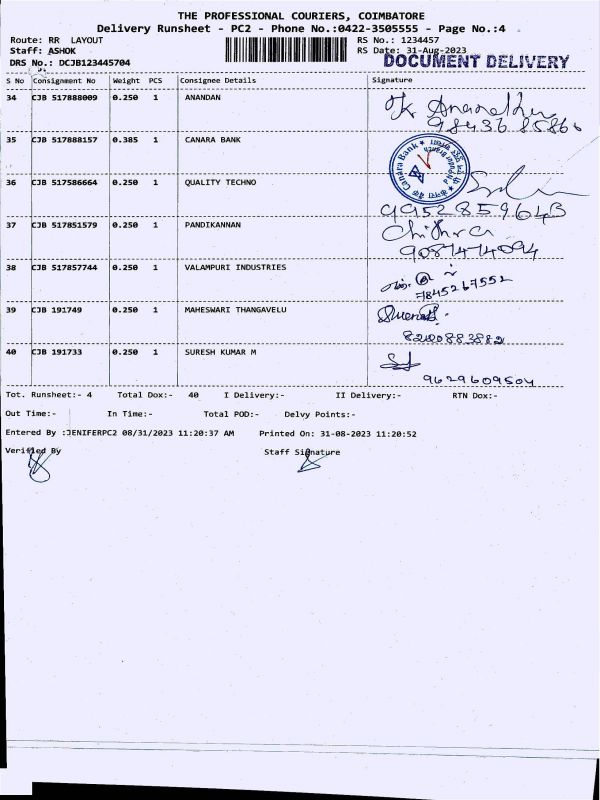 THE PROFESSIONAL COURIERS, COIMBATORE
Delivery Runsheet - PC2 - Phone No.:0422-3505555 - Page No.:4
Route: RR LAYOUT RS No.: 1234457
Staff: ASHOK RS Date: 31-Aug-2023
DRS No.: DCJB123445704 DOCUMENT DELIVERY
S No Consignment No Weight PCS Consignee Details Signature
34 CJB 517888009 0.250 1 ANANDAN
35 CJB 517888157 0.385 1 CANARA BANK
Canara Bank
36 CJB 517586664 0.250 1 QUALITY TECHNO
37 CJB 517851579 0.250 1 PANDIKANNAN Chithra
9087474094
38 CJB 517857744 0.250 1 VALAMPURI INDUSTRIES
7845267552
39 CJB 191749 0.250 1 MAHESWARI THANGAVELU
40 CJB 191733 0.250 1 SURESH KUMAR M
9629609504
Tot. Runsheet:- 4 Total Dox:- 40 I Delivery:- II Delivery:- RTN Dox:-
Out Time:- In Time:- Total POD:- Delvy Points:-
Entered By :JENIFERPC2 08/31/2023 11:20:37 AM Printed On: 31-08-2023 11:20:52
Verified By Staff Signature